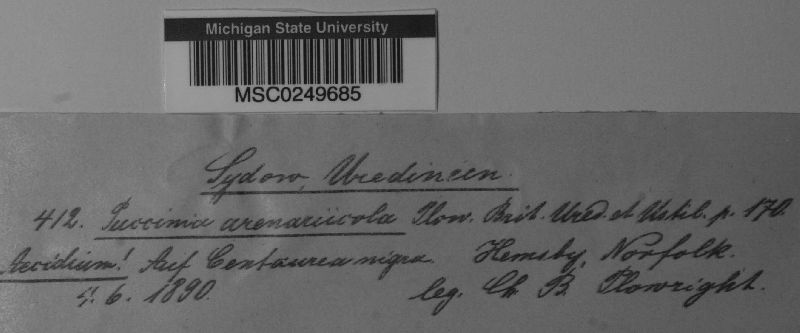 Michigan State University
MSC0249685
Sydow, Uredineen.
412. Puccinia arenariicola Plow. Brit. Ured. et Ustil. p. 170.
Aecidium! Auf Centaurea nigra. Hemsby, Norfolk.
4. 6. 1890. leg. Ch. B. Plowright.